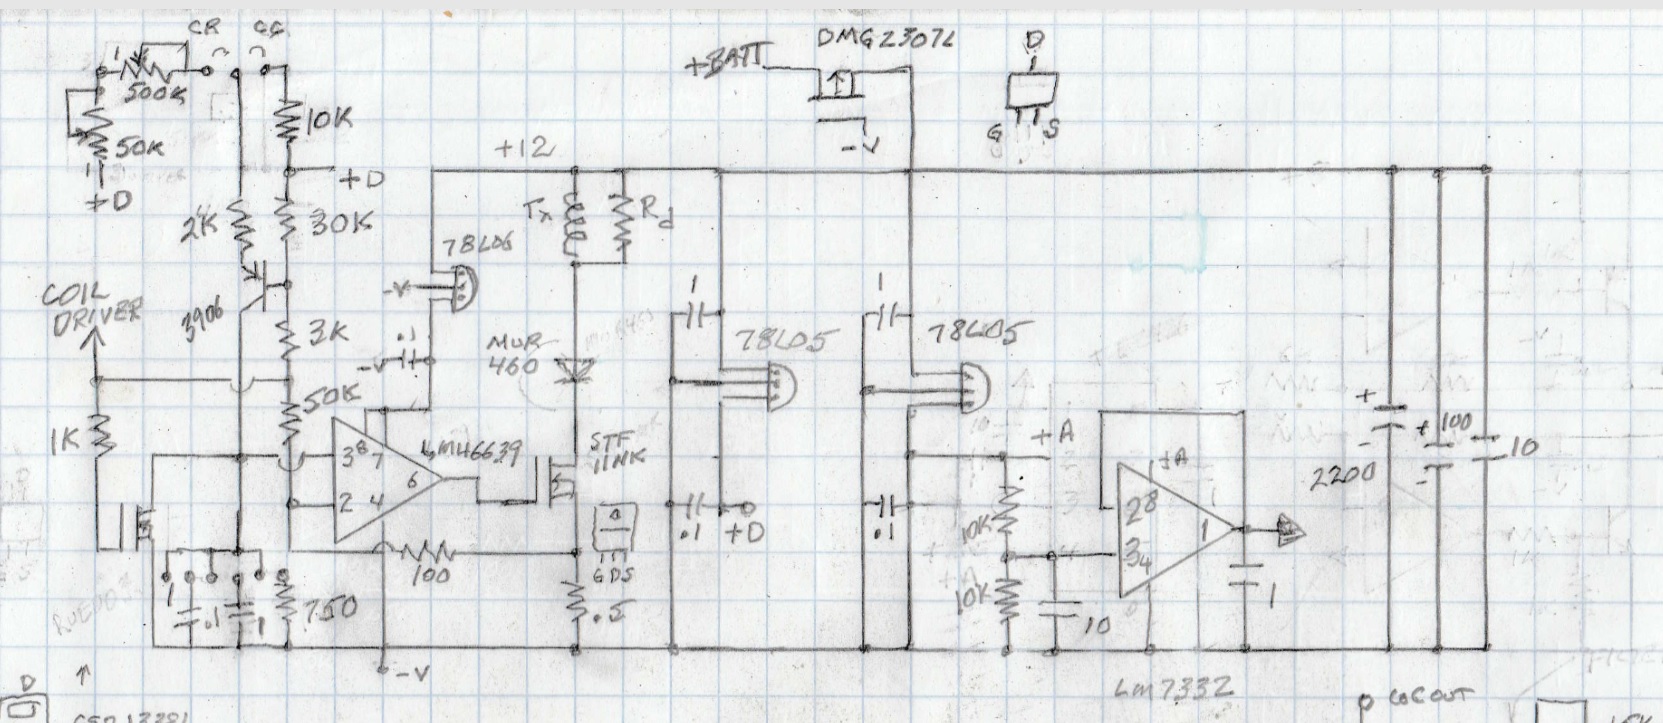 CR CC
500K
50K
+D
10K
+D
2K
30K
3906
3K
50K
COIL
DRIVER
1K
+12
78L06
-V
.1
-V
Tx
Rd
MUR
460
LMH6639
3 8 7
2 4
6
STF
11NK
GDS
100
.5
750
1
.1
1
-V
+BATT
DMG2307L
-V
D
G S
1
78L05
.1
+D
1
78L05
.1
+A
10K
10K
10
+A
2 8
3 4
1
1
LM7332
+
-
2200
+
100
-
10
D